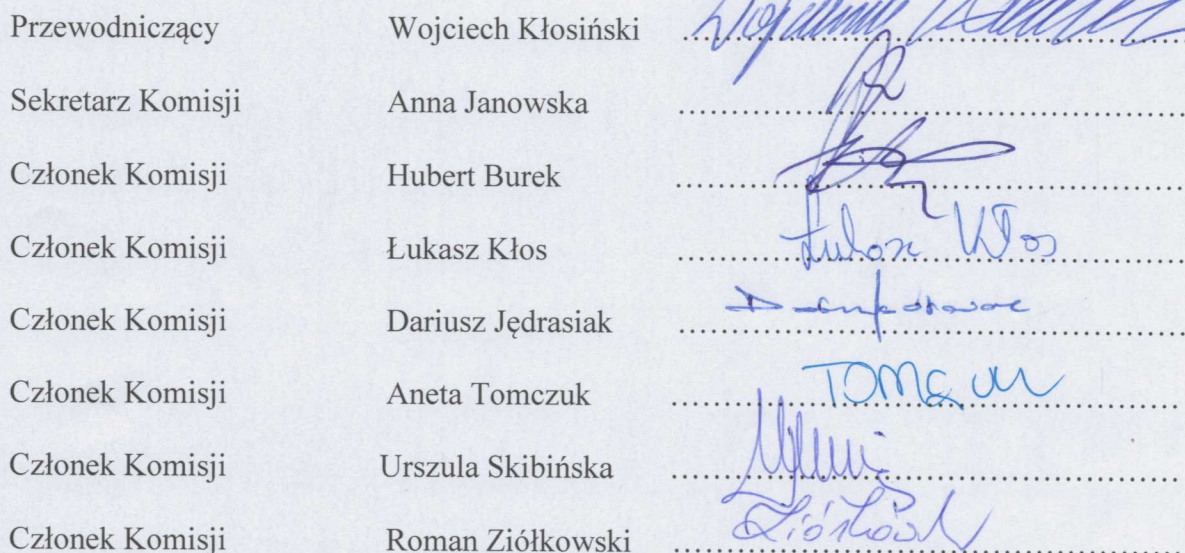 Przewodniczący Wojciech Kłosiński ........................................
Sekretarz Komisji Anna Janowska ........................................
Członek Komisji Hubert Burek ........................................
Członek Komisji Łukasz Kłos ........................................ Łukasz Kłos
Członek Komisji Dariusz Jędrasiak ........................................
Członek Komisji Aneta Tomczuk ........................................
Członek Komisji Urszula Skibińska ........................................
Członek Komisji Roman Ziółkowski ........................................